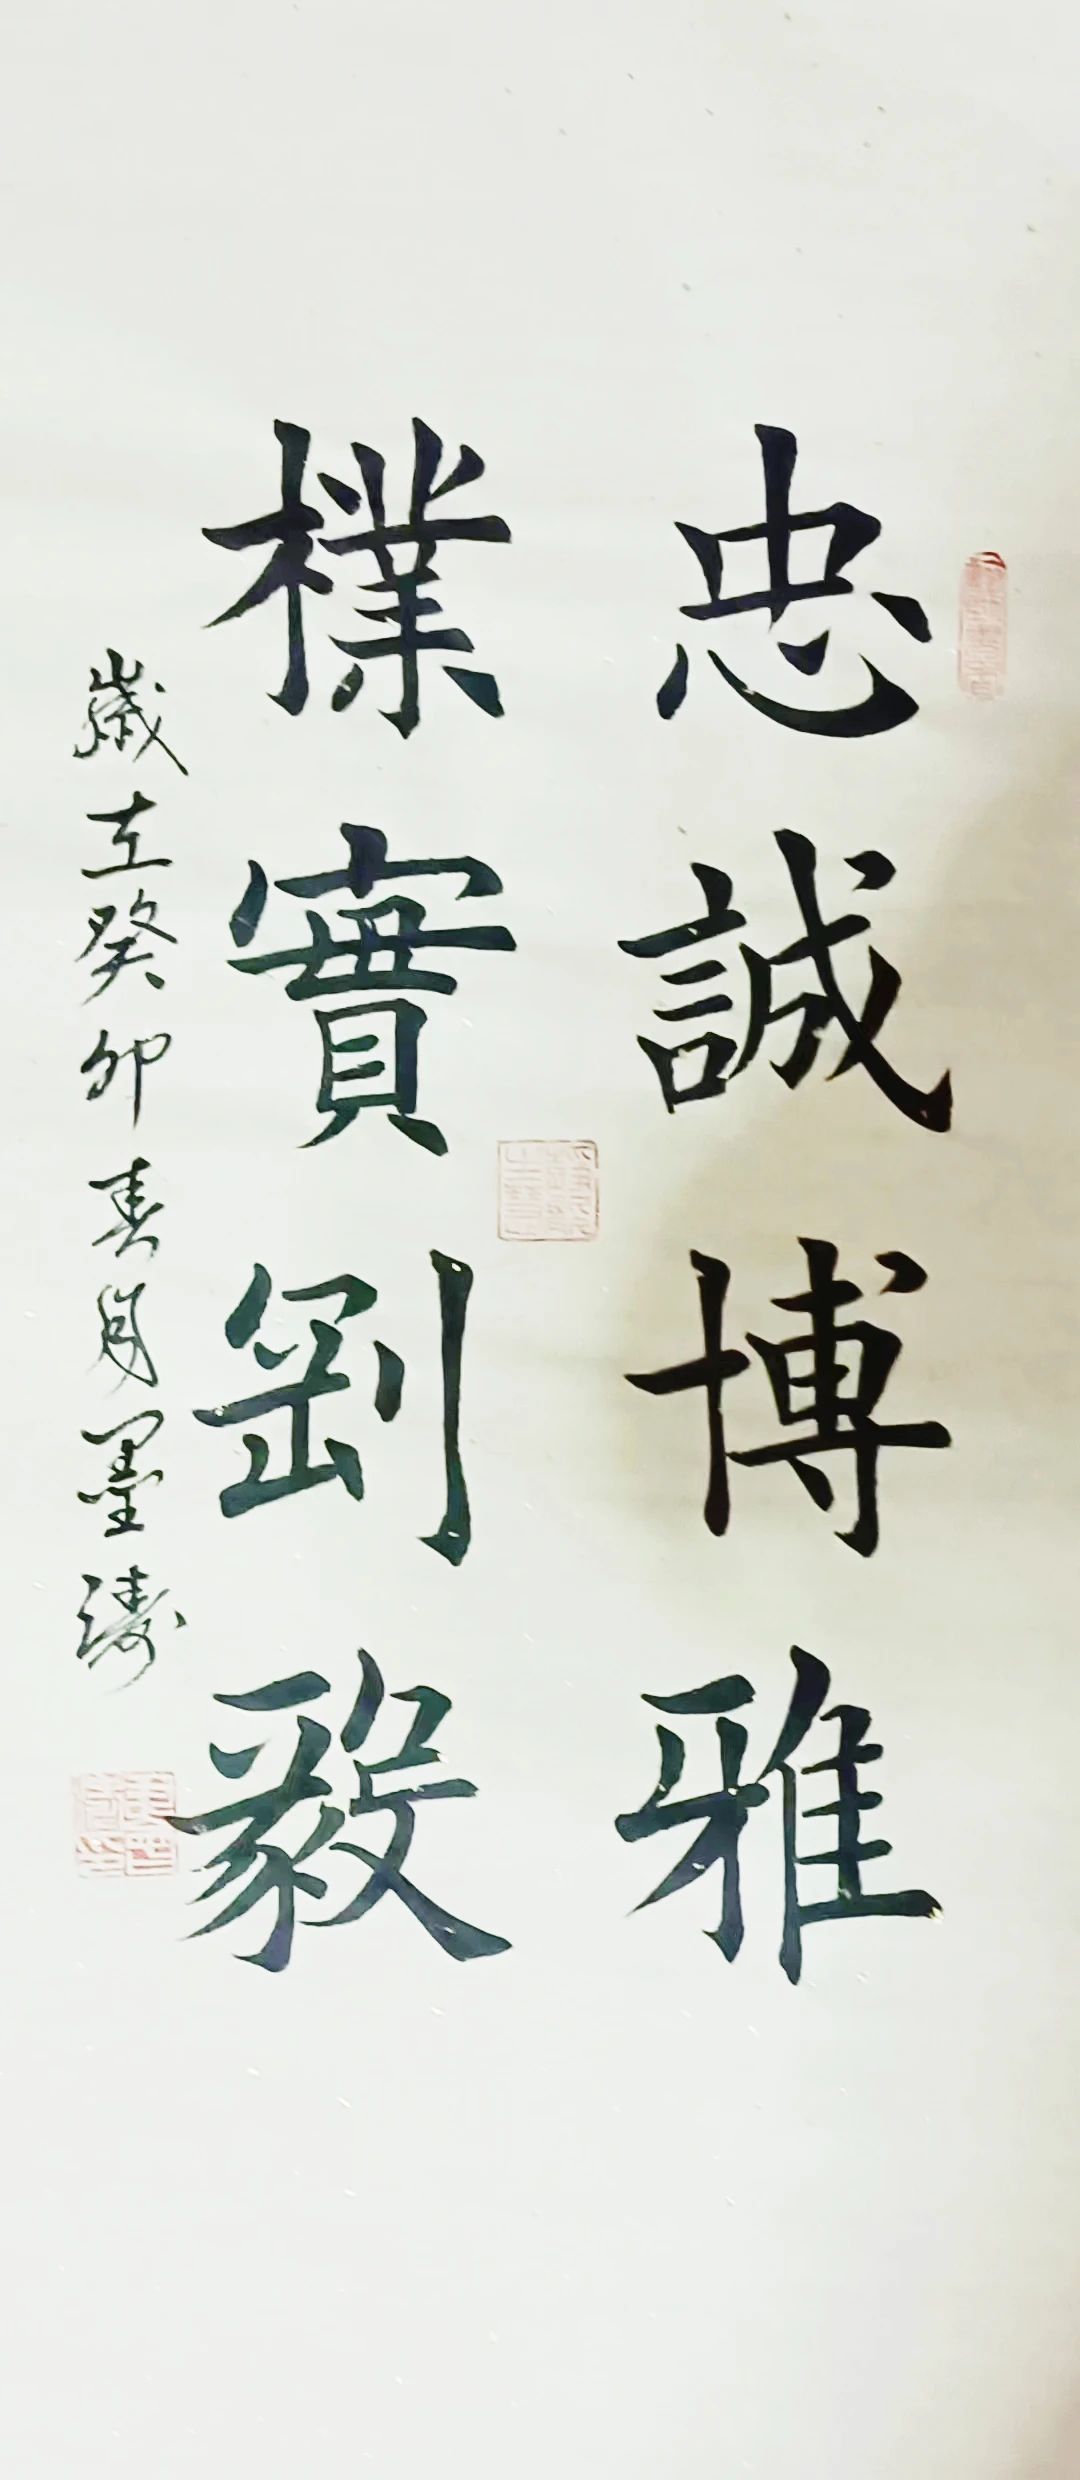 忠誠博雅
樸實剛毅
歲在癸卯春月墨濤